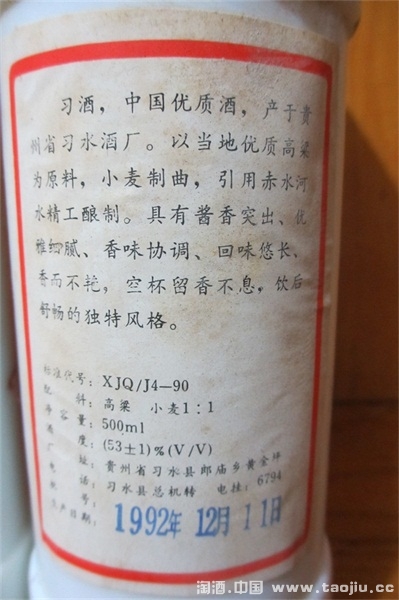 习酒，中国优质酒，产于贵
州省习水酒厂。以当地优质高粱
为原料，小麦制曲，引用赤水河
水精工酿制。具有酱香突出、优
雅细腻、香味协调、回味悠长、
香而不艳，空杯留香不息，饮后
舒畅的独特风格。
标准代号：XJQ/J4—90
配料：高粱 小麦1:1
净容量：500ml
酒度：(53±1)%(V/V)
厂址：贵州省习水县郎庙乡黄金坪
电话：习水县总机转 电挂：6794
批号：
生产日期：1992年 12月 11日
淘酒.中国 www.taojiu.cc